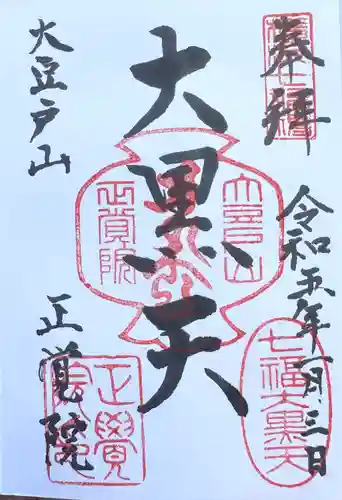 奉拝
令和五年一月三日
大黒天
大豆戸山
正覚院
大豆戸山
正覚院
七福大黒天
正覺院